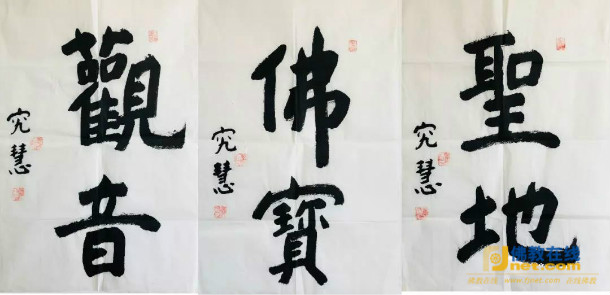 觀音
究慧
佛寶
究慧
聖地
究慧
佛教在线
Fjnet.com